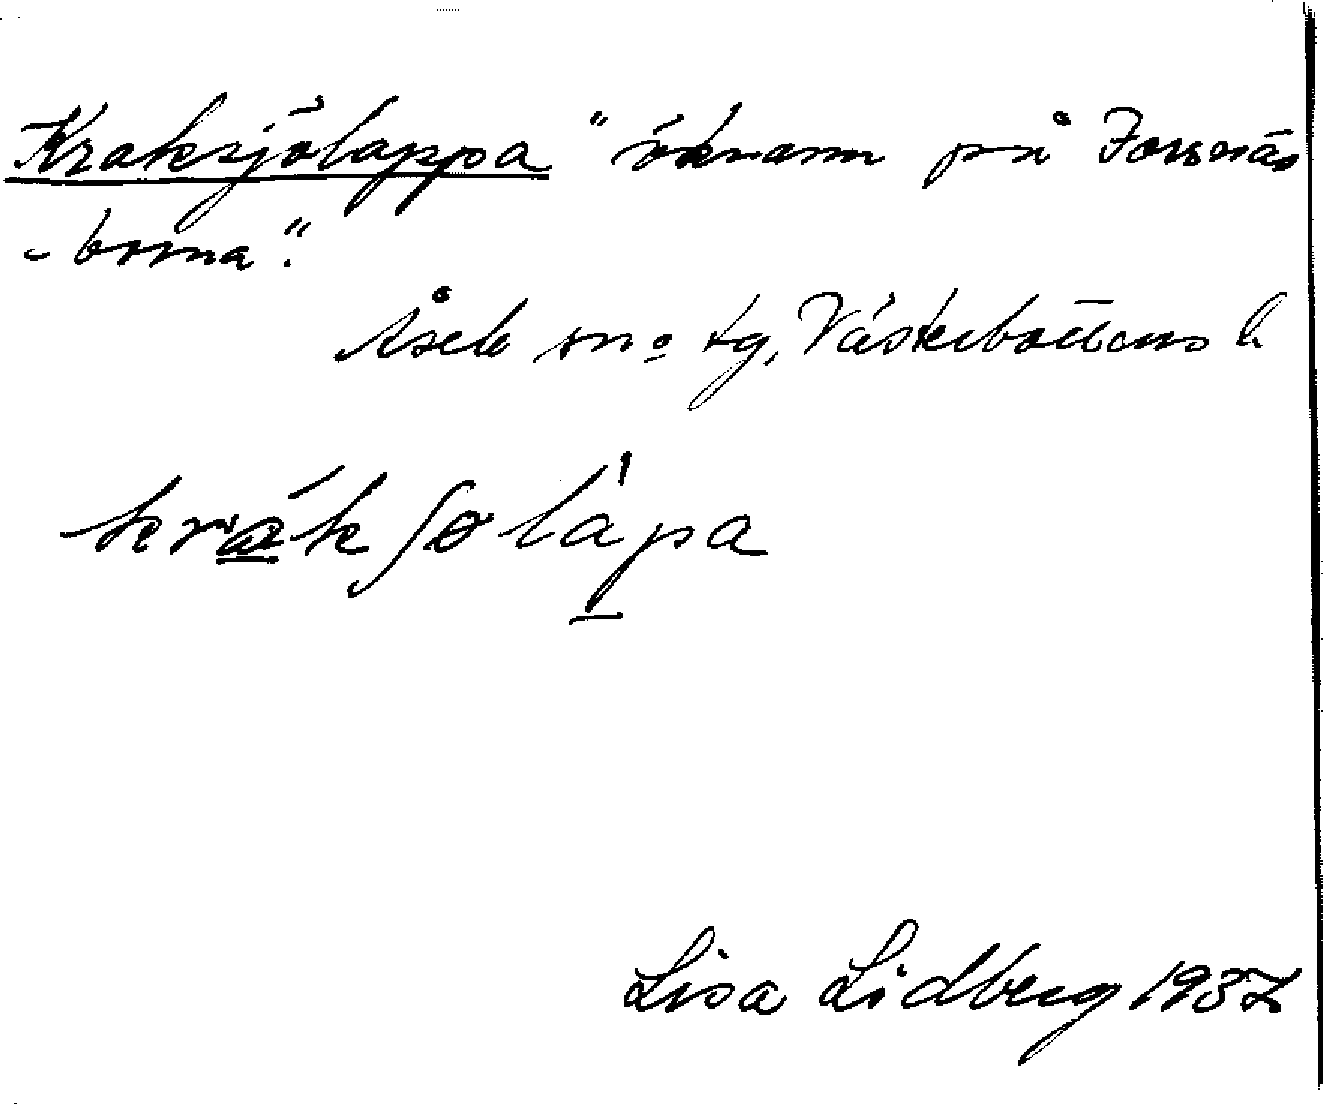 Kraksjölappa "öknamn på Forsnäs
-borna".
Åsele sn o tg, Västerbottens l.
krákʃolápa
Lisa Lidberg 1937